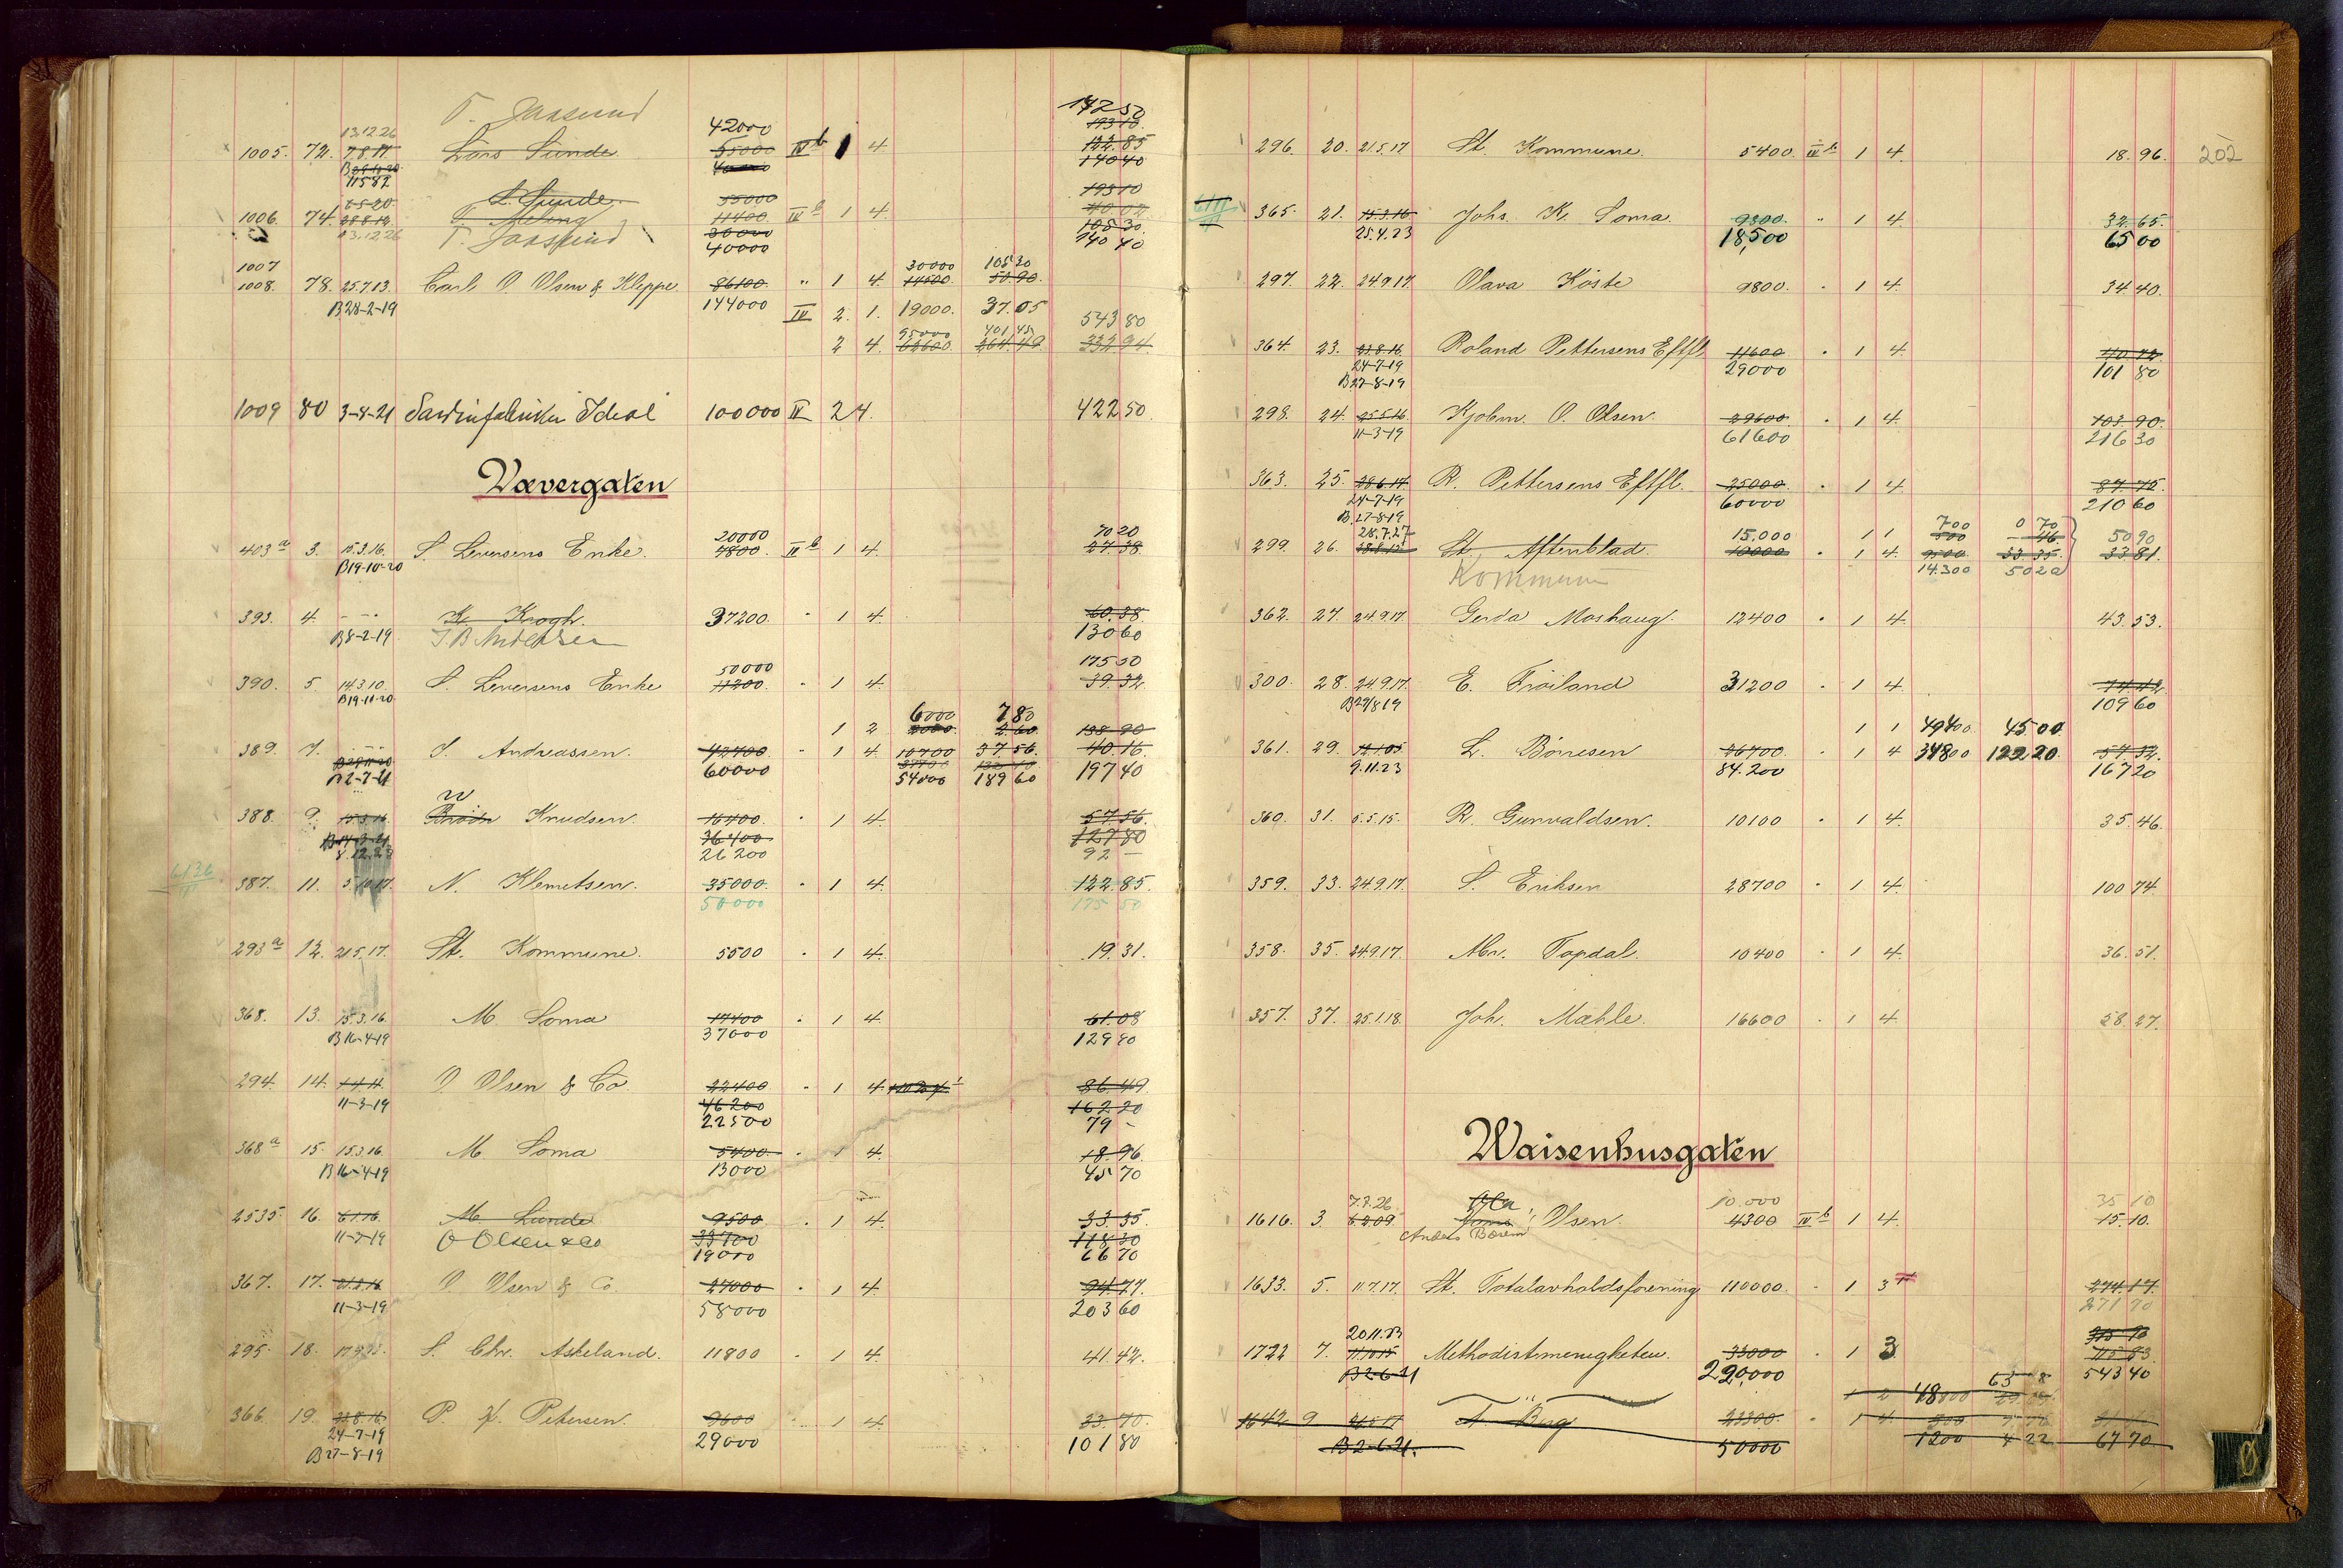 T. Jaasund
13.12.26 42000 142 50
193 10
1005. 72. 7.8.17 Lars Sunde. 55000 IV b 1 4 122.85
B28-10-20 40000 140 40
11587
L. Sunde. 55000 193 10
6-5-20
1006. 74. 28.8.12 T. Meling 11400 IV b 1 4. 40 02
13.12.26 T. Jaasund 30000 105 30
40000 140 40
1007 30000 105 30
1008. 78. 25.7.13. Carl O. Olsen & Kleppe. 86100 " 1 4. 14500 50.90
B28-2-19 144000 IV 2. 1. 19000. 37.05 543 80
95000 401,45
2 4. 62600 264.49 332 94
1009 80 3-8-21 Sardinfabriken Ideal 100000 IV 2 4. 422 50
Vævergaten
20000 70 20
403a 3. 15.3.16. S. Seversens Enke. 7800. IV b 1 4. 27.38
B19-10-20
393. 4 - - - K. Krogh. 37200. " 1 4. 60.38
B8-2-19 T. B. Andersen 130 60
50000 175 50
390. 5. 14.3.10. S. Seversens Enke 11200. " 1 4. 39.32
B19-11-20
6000 7 80
1 2 2000 2.60 138 90
389. 7. - - - S. Andreassen. 42700 " 1 4. 10700 37.56 40.16
B29-11-20 60000 37700 132 40 197 40
B2-7-21 54000 189 60
W
388. 9. 15.3.16 Brødr Knudsen. 16400. " 1 4. 57.56.
B14-3-21 36400 127 80
8.12.23 26200 92 —
6136
387. 11. 5.10.17. N. Klemetsen. 35000. " 1 4. 122 85.
50000 175 50
293a 12. 21.5.17. St. Kommune. 5500 " 1 4. 19.31.
368. 13. 15.3.16. M. Soma 17400 " 1 4. 61.08
B16-4-19 37000 129 90
294. 14. 1.4.11. O. Olsen & Co. 22400 " 1 4. 86.49
11-3-19 46200 162 20
22500 79 -
368a 15. 15.3.16. M. Soma 5400. " 1 4. 18.96
B16-4-19 13000 45 70
2535. 16. 6.1.16. M. Lunde 9500 " 1 4. 33.35.
11-7-19 O Olsen & Co 33700 118 30
19000 66 70
367. 17. 21.2.16. O. Olsen & Co. 27000 " 1 4. 94.77.
11-3-19 58000 203 60
295. 18. S. Chr. Askeland. 11800 " 1 4. 41.42.
366. 19. 23.8.16. P. H. Petersen. 9600 " 1 4. 33.70.
24-7-19 29000 101 80
B27-8-19
202
296. 20. 21.5.17 St. Kommune. 5400. IV b 1 4. 18.96.
365. 21. 15.3.16 Johs. K. Soma. 9300. " 1 4. 32.65.
25.4.23 18,500 65 00
297. 22. 24.9.17. Olava Köste 9800. " 1 4. 34 40.
364. 23. 23.8.16. Roland Pettersens Eftfl. 11600 " 1 4. 40.72
24-7-19 29000 101 80
B27-8-19
298. 24. 25.5.16 Kjøbm. O. Olsen. 29600. " 1 4. 103.90.
11-3-19 61600 216 30
363. 25. 28.6.17 R. Pettersens Eftfl. 25000. " 1 4. 87.75.
24-7-19 60000 210 60
B.27-8-19
28.7.27 15,000 1 1 700 0 70
500 - 46 50 90
299. 26. St. Aftenblad. 10000 " 1 4. 9500 33.35. 33.81.
Kommune 14.300 50 20
362. 27. 24.9.17. Gerda Moshaug. 12400 " 1 4. 43.53.
300. 28. 24.9.17. E. Froiland 31200 " 1 4. 74 42
B29/8 19 109 60
1 1 49400. 45 00.
361. 29. 12.1.05 L. Börresen 26700 " 1 4 34800 122 20. 57.32.
9.11.23 84.200 167 20
360. 31. 5.5.15. R. Gunvaldsen. 10100 " 1 4. 35.46.
359. 33. 24.9.17. S. Eriksen 28700 " 1 4. 100 74.
358. 35. 24.9.17. Mr. Topdal. 10400 " 1 4. 36.51.
357. 37. 25.1.18. Joh. Mæhle. 16600 " 1 4. 58.27.
Waisenhusgaten
7.7.26 10.000 35 10
1616. 3. 6.2.09. Olsen. 4300 IV b 1 4. 15.10.
Anders Børem
1633. 5. 11.7.17. St. Totalavholdsforening 110000. " 1 3 274.17.
271 70
20.11.23 315 90
1722 7. 11.10.15 Methodistmenigheten. 33000 " 1 3 115.83
B2-6-21 220,000 543 40
1 2 48800 63
1642 9 21.5.17 T. Berg 23300. " 1 4. 500
B2-6-21. 50000 1200 4 22 67 70
Ø